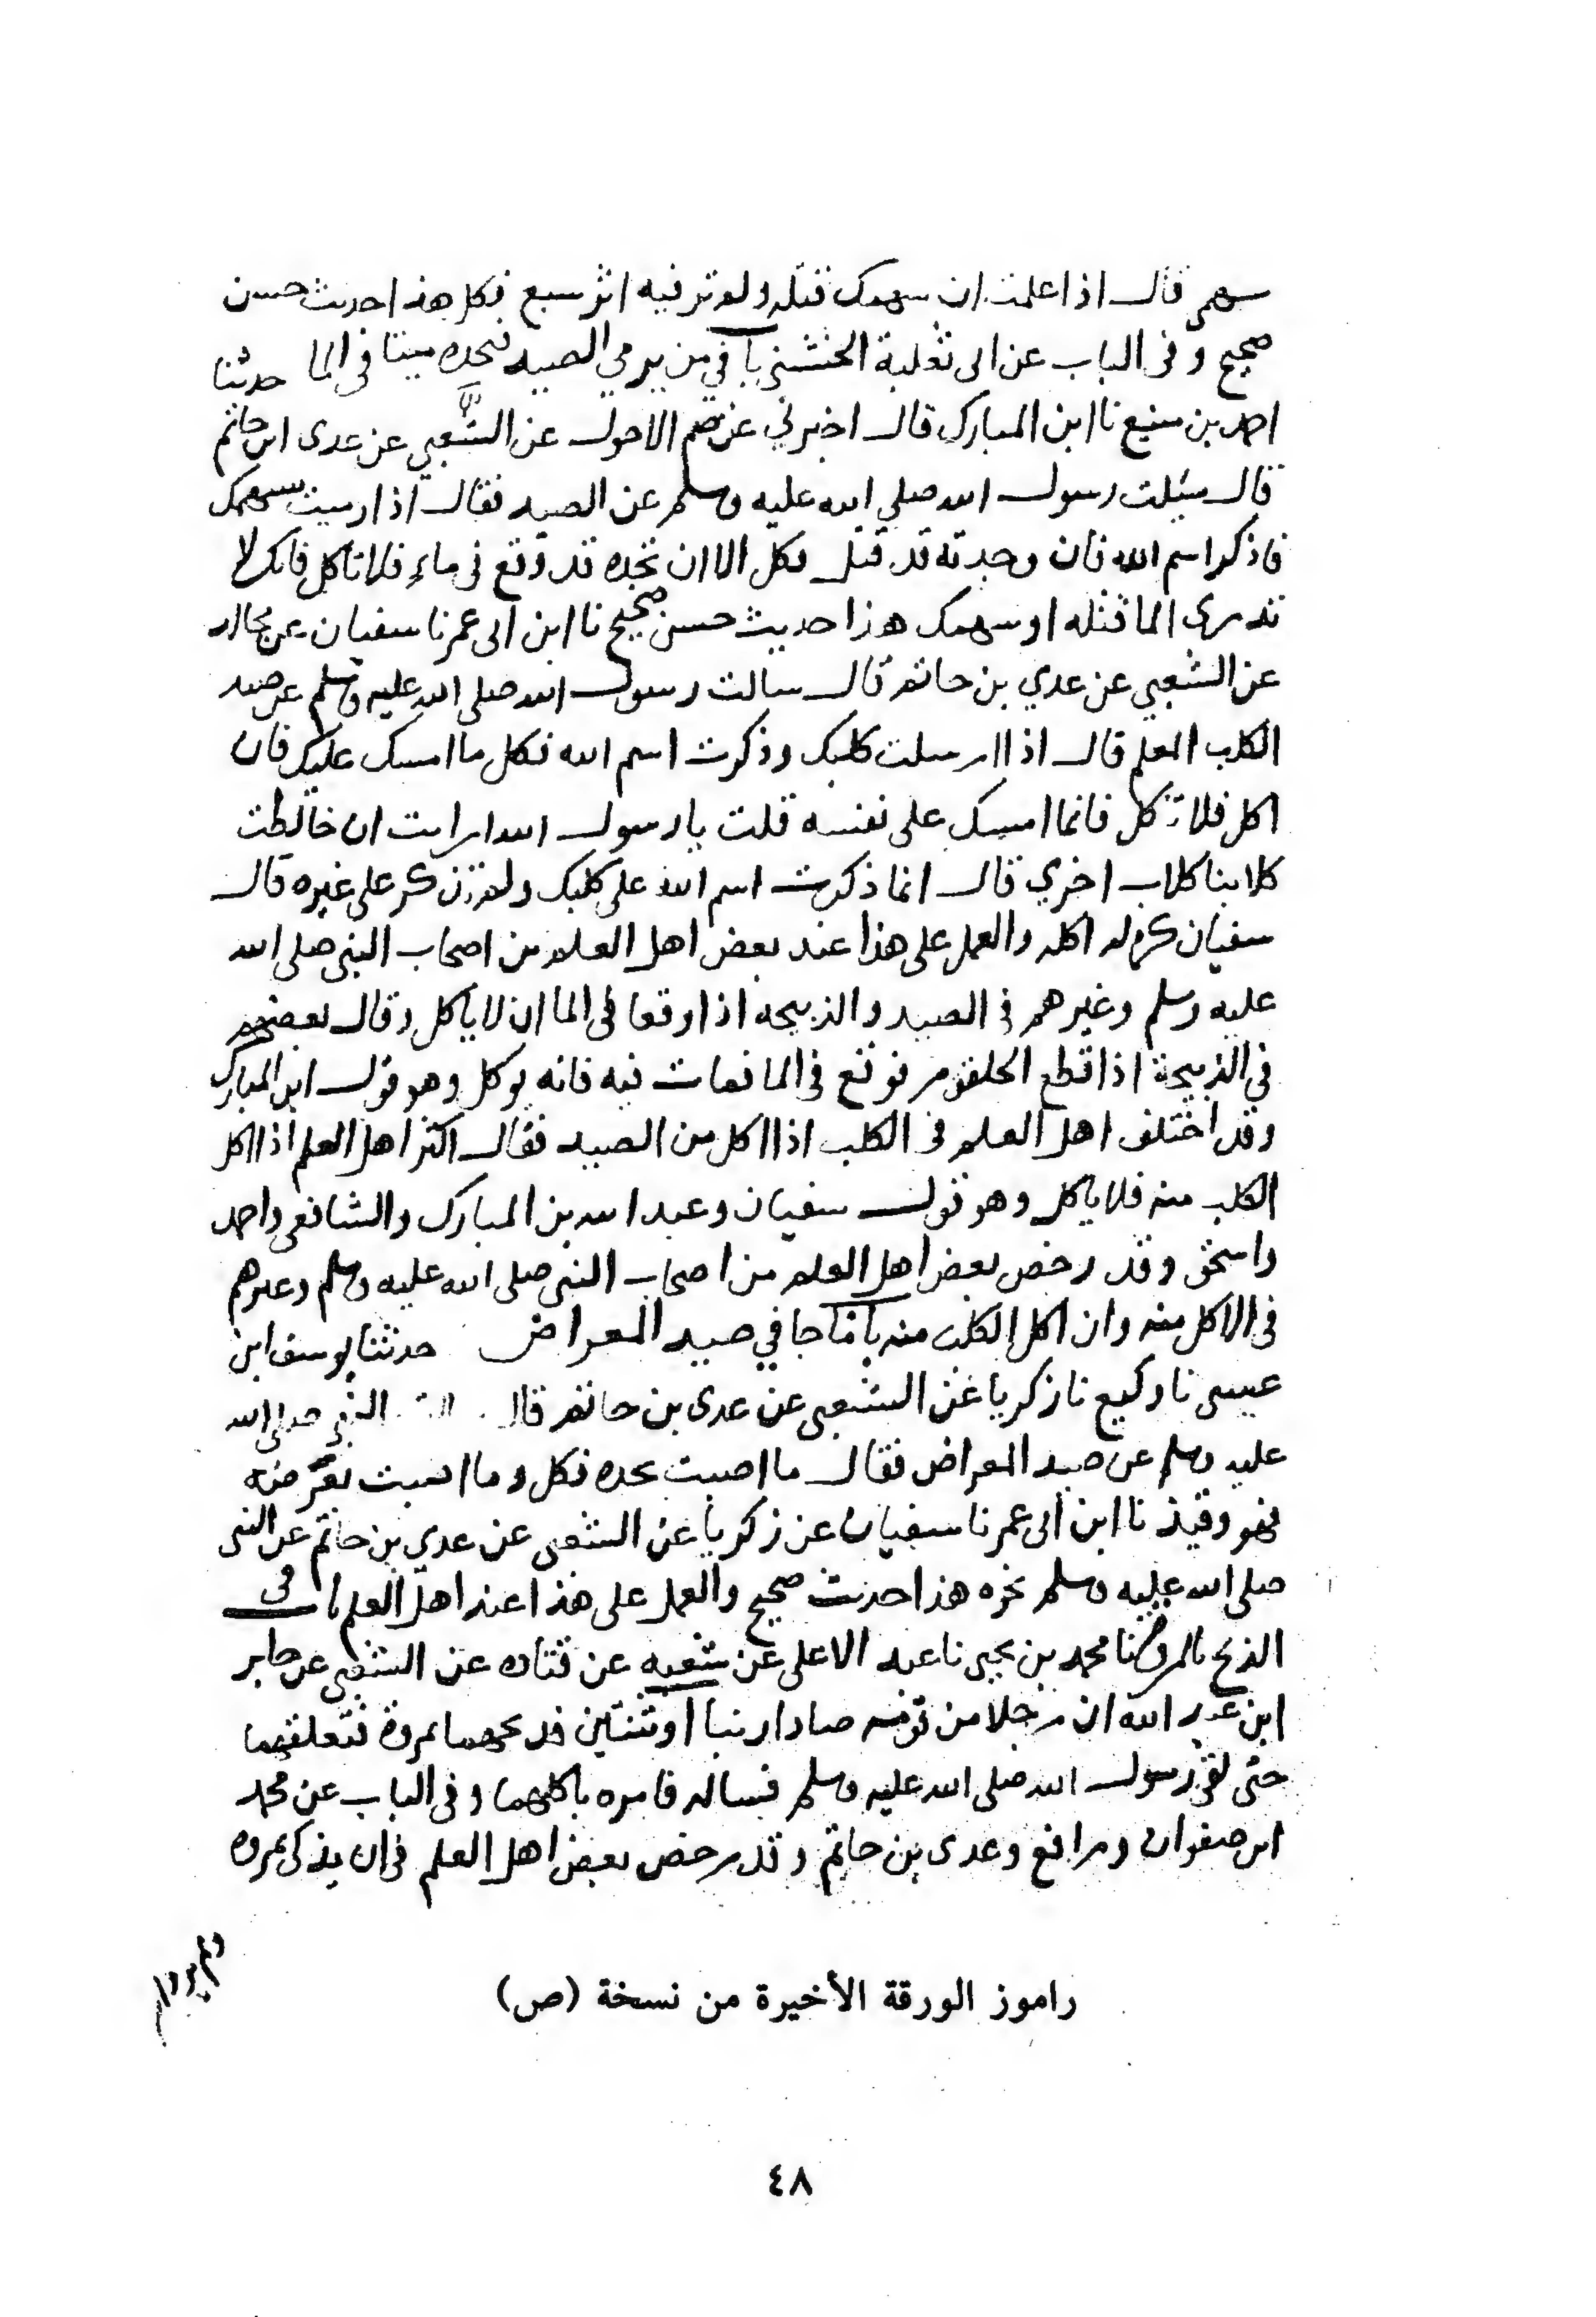 سهمي قال اذا علمت ان سهمك قتله ولم تر فيه اثر سبع فكل هذا حديث حسن
صحيح وفي الباب عن ابي ثعلبة الخشني باب في من يرمي الصيد فيجده ميتا في الما حدثنا
احمد بن منيع نا ابن المبارك قال اخبرني عاصم الاحول عن الشعبي عن عدى ابن حاتم
قال سئلت رسول الله صلى الله عليه وسلم عن الصيد فقال اذا رميت سهمك
فاذكر اسم الله فان وجدته قد قتل فكل الا ان تجده قد وقع في ماء فلا تاكل فانك لا
تدرى الما قتله او سهمك هذا حديث حسن صحيح نا ابن ابى عمر نا سفيان عن مجالد
عن الشعبي عن عدي بن حاتم قال سالت رسول الله صلى الله عليه وسلم عن صيد
الكلب المعلم قال اذا ارسلت كلبك وذكرت اسم الله فكل ما امسك عليك فان
اكل فلا تاكل فانما امسك على نفسه قلت يا رسول الله ارايت ان خالطت
كلابنا كلاب اخري قال انما ذكرت اسم الله على كلبك ولم تذكر على غيره قال
سفيان كره له اكله والعمل على هذا عند بعض اهل العلم من اصحاب النبى صلى الله
عليه وسلم وغيرهم في الصيد والذبيحة اذا وقعا في الما ان لا ياكل وقال بعضهم
في الذبيحة اذا قطع الحلقوم فوقع في الما فمات فيه فانه يوكل وهو قول ابن المبارك
وقد اختلف اهل العلم في الكلب اذا اكل من الصيد فقال اكثر اهل العلم اذا اكل
الكلب منه فلا ياكل وهو قول سفيان وعبد الله بن المبارك والشافعي واحمد
واسحق وقد رخص بعض اهل العلم من اصحاب النبي صلى الله عليه وسلم وغيرهم
في الاكل منه وان اكل الكلب منه باب ما جا في صيد المعراض حدثنا يوسف ابن
عيسى نا وكيع نا زكريا عن الشعبي عن عدى بن حاتم قال النبي صلى الله
عليه وسلم عن صيد المعراض فقال ما اصبت بحده فكل وما اصبت بعرضه
فهو وقيذ نا ابن ابى عمر نا سفيان عن زكريا عن الشعبى عن عدي بن حاتم عن النبى
صلى الله عليه وسلم نحوه هذا حديث صحيح والعمل على هذا عند اهل العلم باب في
الذبح بالمروة نا محمد بن يحيى نا عبد الاعلى عن شعبه عن قتاده عن الشعبي عن جابر
ابن عبد الله ان رجلا من قومه صاد ارنبا او ثنتين فذبحهما بمروة فتعلقهما
حتى لقي رسول الله صلى الله عليه وسلم فساله فامره باكلهما وفي الباب عن محمد
ابن صفوان ورافع وعدى بن حاتم وقد رخص بعض اهل العلم في ان يذكى بمروه
راموز الورقة الأخيرة من نسخة (ص)
٤٨